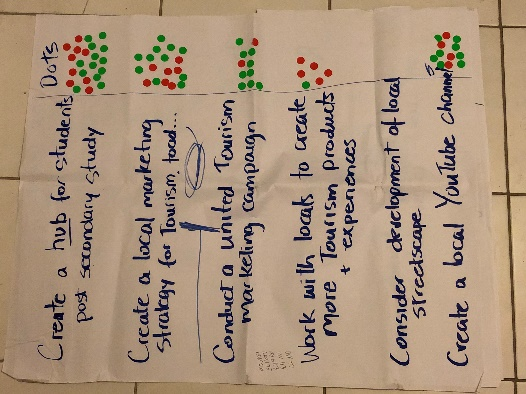 Dots
Create a hub for students
post secondary study
Create a local marketing
strategy for Tourism, food...
Conduct a united Tourism
marketing campaign
Work with locals to create
more Tourism products
+ experiences
Consider development of local
streetscape
Create a local YouTube channel